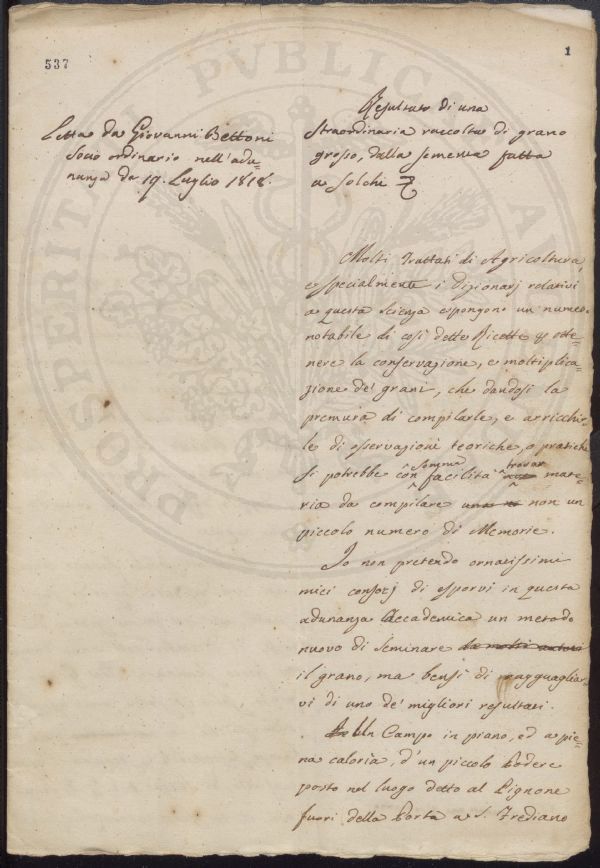 537
1
Letta da Giovanni Bettoni
Socio ordinario nell'adu=
nanza de 19. Luglio 1818.
Resultato di una
straordinaria raccolta di grano
grosso, dalla semenza fatta
a solchi
Molti Trattati di Agricoltura,
e specialmente i dizionarj relativi
a questa scienza espongono un numero
notabile di così dette Ricette p otte=
nere la conservazione, e moltiplica=
zione de' grani, che dandosi la
premura di compilarle, e arricchir
le di osservazioni teoriche, o pratiche
si potrebbe con somma facilità trovar mate=
ria da compilare non un
piccolo numero di Memorie.
Io non pretendo ornatissimi
miei consocj di esporvi in questa
adunanza Accademica un metodo
nuovo di seminare da molti autori
il grano, ma bensì di ragguagliar=
vi di uno de' migliori resultati.
Un Campo in piano, ed a pie=
na caloria, d'un piccolo Podere
posto nel luogo detto al Pignone
fuori della Porta a S. Frediano